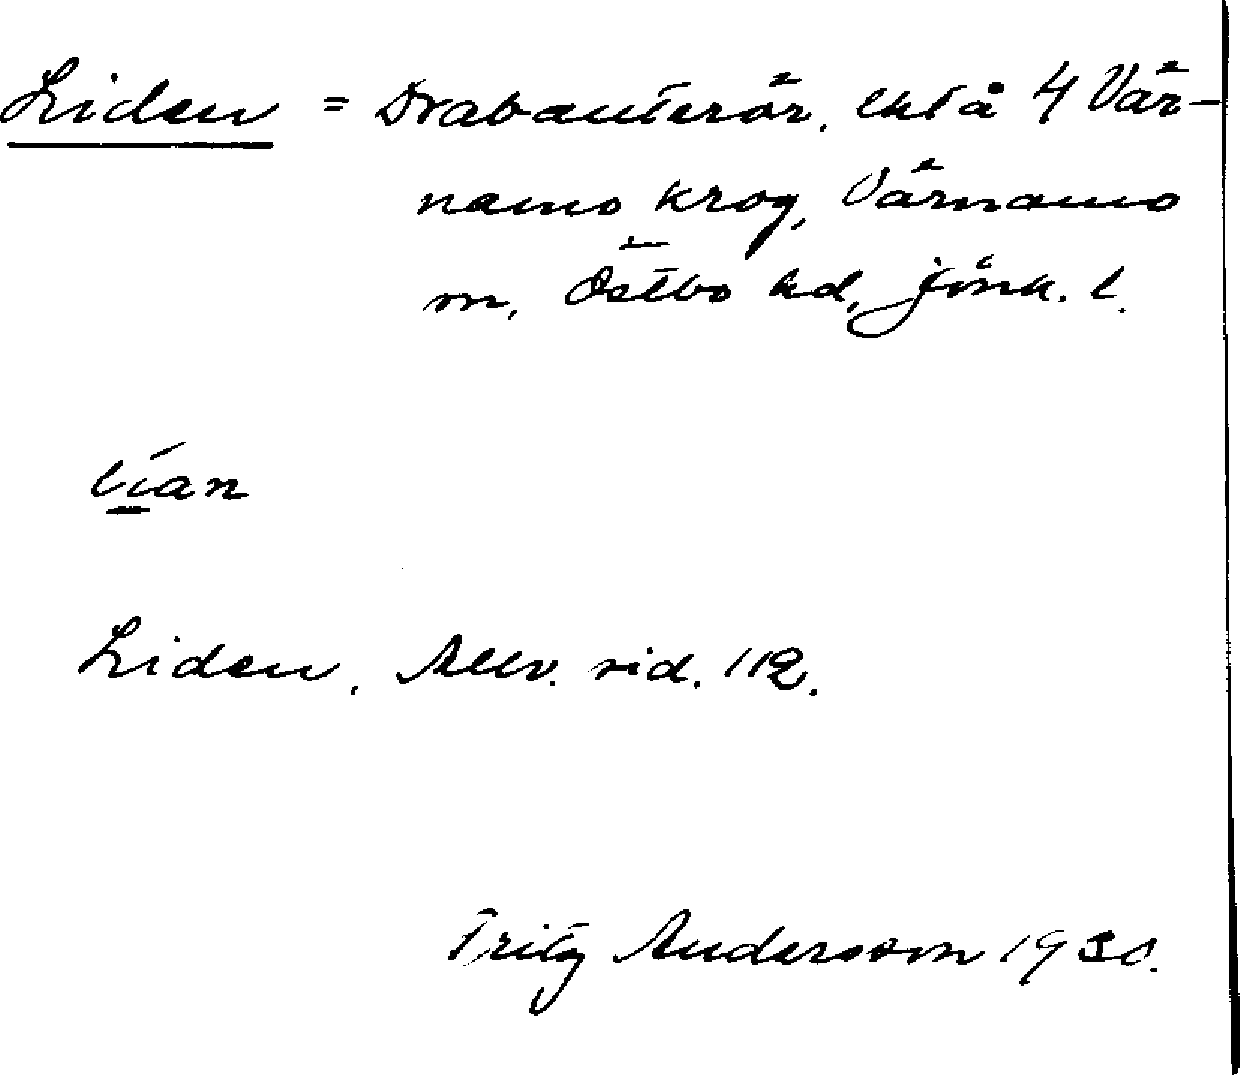 Liden = Drabanterör, lht å 4 Vär-
namo krog, Värnamo
sn, Östbo hd, Jönk. l.
lían
Liden. Allv. sid. 112.
Fritz Andersson 1930.